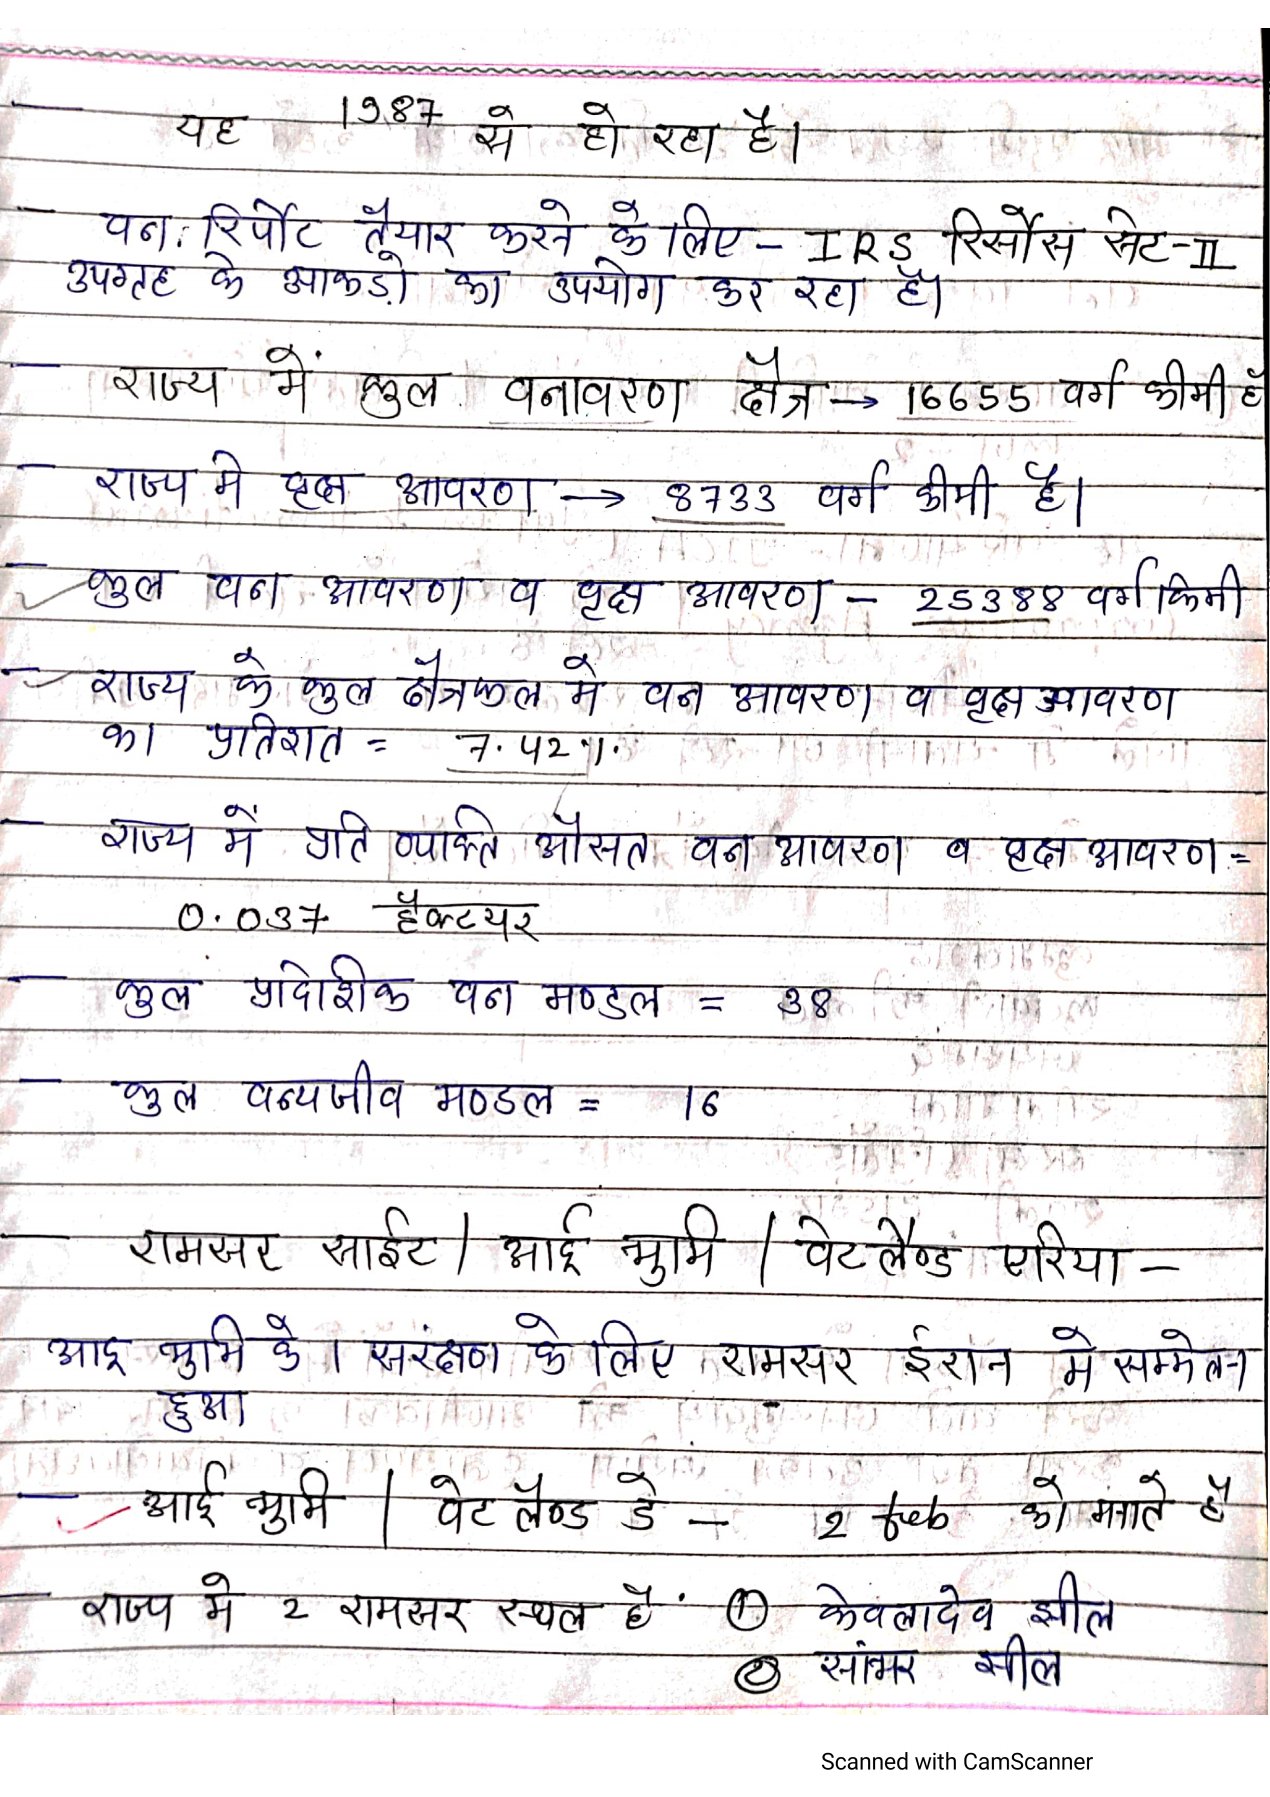 यह 1987 से हो रहा है।
वन रिर्पोट तैयार करने के लिए - IRS रिर्सोस सेट-II
उपग्रह के आकडो का उपयोग कर रहा है।
राज्य में कुल वनावरण क्षैत्र → 16655 वर्ग कीमी है
राज्य मे वृक्ष आवरण → 8733 वर्ग कीमी है।
कुल वन आवरण व वृक्ष आवरण - 25388 वर्ग किमी
राज्य के कुल क्षैत्रफल मे वन आवरण व वृक्ष आवरण
का प्रतिशत = 7.42%
राज्य में प्रति व्यक्ति औसत वन आवरण व वृक्ष आवरण =
0.037 हैक्टयर
कुल प्रादेशिक वन मण्डल = 38
कुल वन्यजीव मण्डल = 16
रामसर साईट / आर्द्र भुमि / वेटलैण्ड एरिया -
आद्र भुमि के । सरंक्षण के लिए रामसर ईरान मे सम्मेलन
हुआ
आर्द्र भुमि / वेट लैण्ड डे - 2 feb को मनाते है
राज्य मे 2 रामसर स्थल है ① केवलादेव झील
② सांभर झील
Scanned with CamScanner